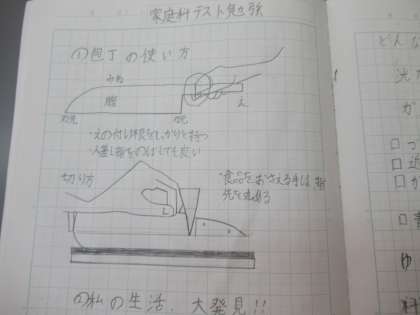 家庭科テスト勉強
(1)包丁の使い方
みね
腹
え
刃先
刃元
・えの付け根をしっかりと持つ
人差し指をのばしても良い
切り方
・食品をおさえる手は、指
先を丸める
(2)私の生活、大発見!!
どんな